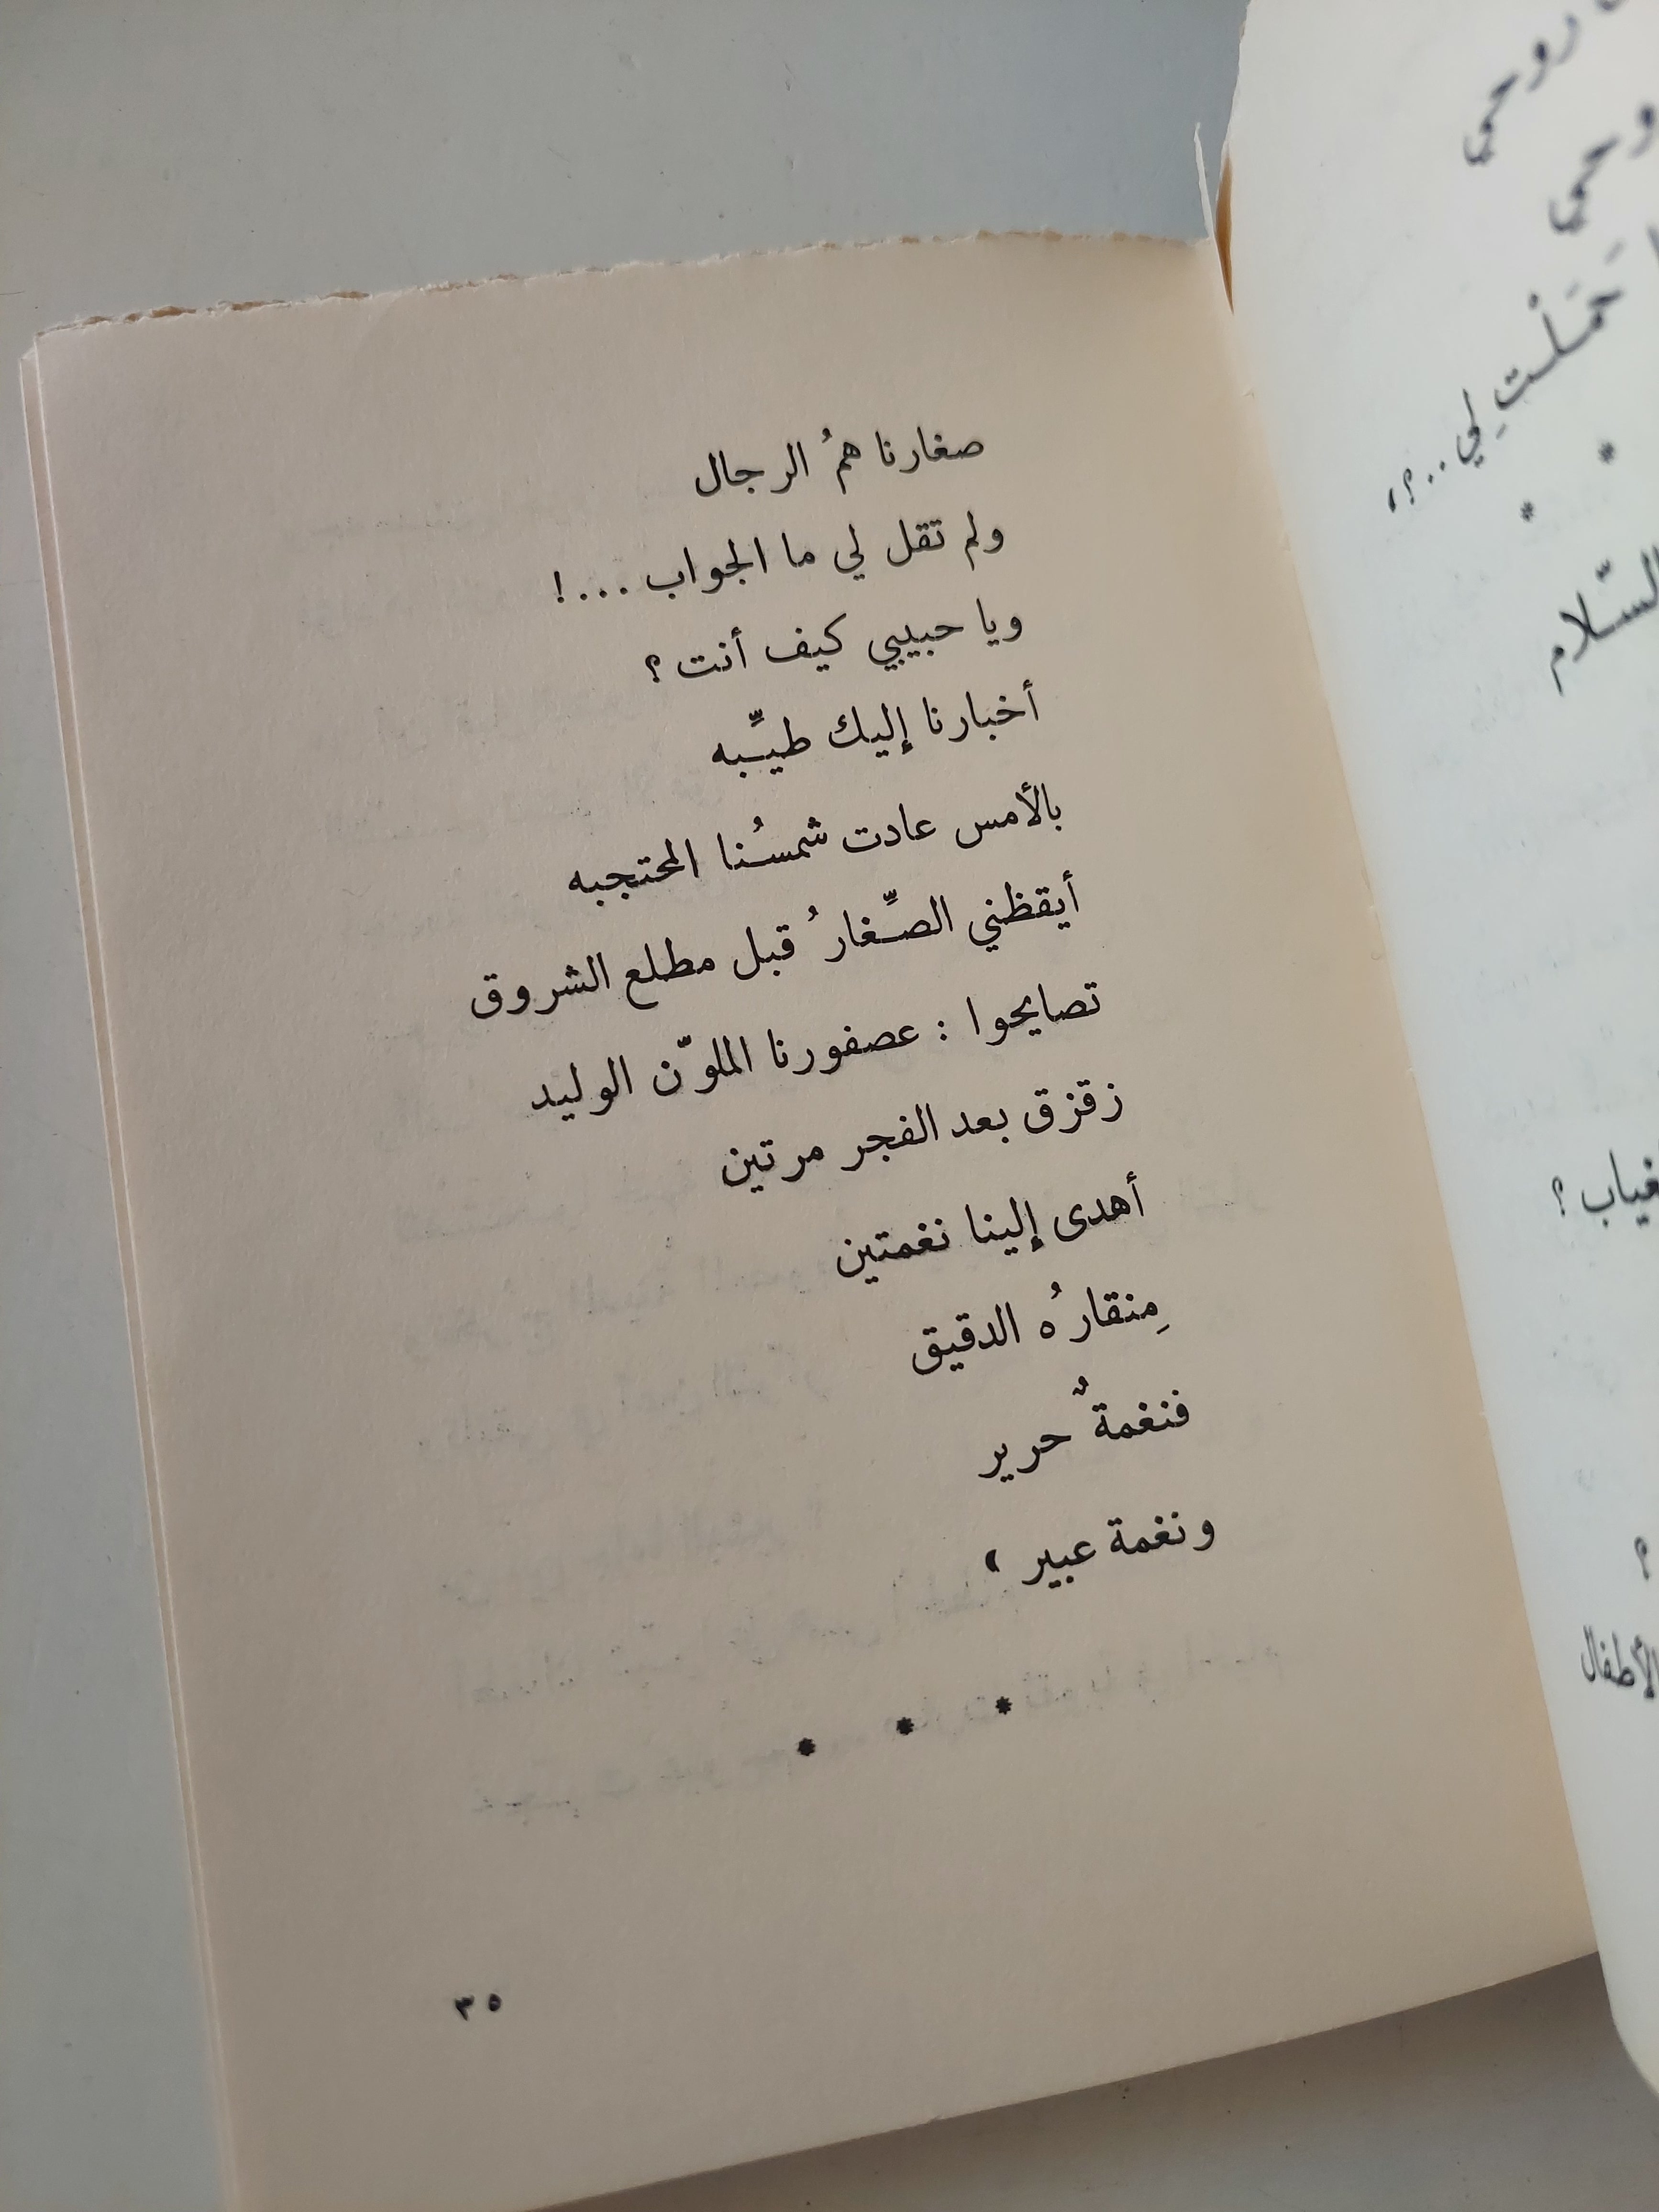 صغارنا همُ الرجال
ولم تقل لي ما الجواب ...!
ويا حبيبي كيف أنت ؟
أخبارنا إليك طيِّبه
بالأمس عادت شمسُنا المحتجبه
أيقظني الصِّغارُ قبل مطلع الشروق
تصايحوا : عصفورنا الملوّن الوليد
زقزق بعد الفجر مرتين
أهدى إلينا نغمتين
مِنقارُه الدقيق
فنغمةٌ حرير
ونغمة عبير »
* * *
٣٥
روحي
وحي
حَمَلْتِ لي ..؟،
* *
السّلام
غياب ؟
؟
الأطفال